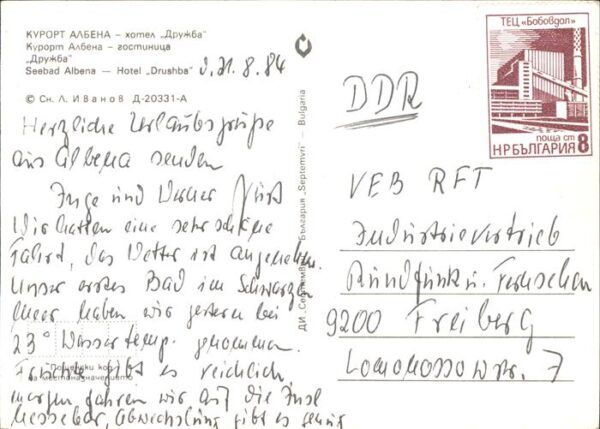 КУРОРТ АЛБЕНА – хотел „Дружба"
Курорт Албена – гостиница
„Дружба"
Seebad Albena – Hotel „Drushba"
d. 31.8.84
© Сн. Л. Иванов Д-20331-А
Herzliche Urlaubsgrüße
aus Albena senden
Inge und Werner
Wir hatten eine sehr schöne
Fahrt, das Wetter ist angenehm.
Unser erstes Bad im Schwarzen
Meer haben wir gestern bei
23° Wassertemp. genommen.
Früchte gibt es reichlich
morgen fahren wir auf die Insel
Nessebar, Abwechslung gibt es genug
Пощенски код
на местоназначението
ДИ „Септември" – България „Septemvri" – Bulgaria
ТЕЦ „Бобовдол"
поща ст
НР БЪЛГАРИЯ 8
DDR
VEB RFT
Industrievertrieb
Rundfunk u. Fernsehen
9200 Freiberg
Lomonossowstr. 7